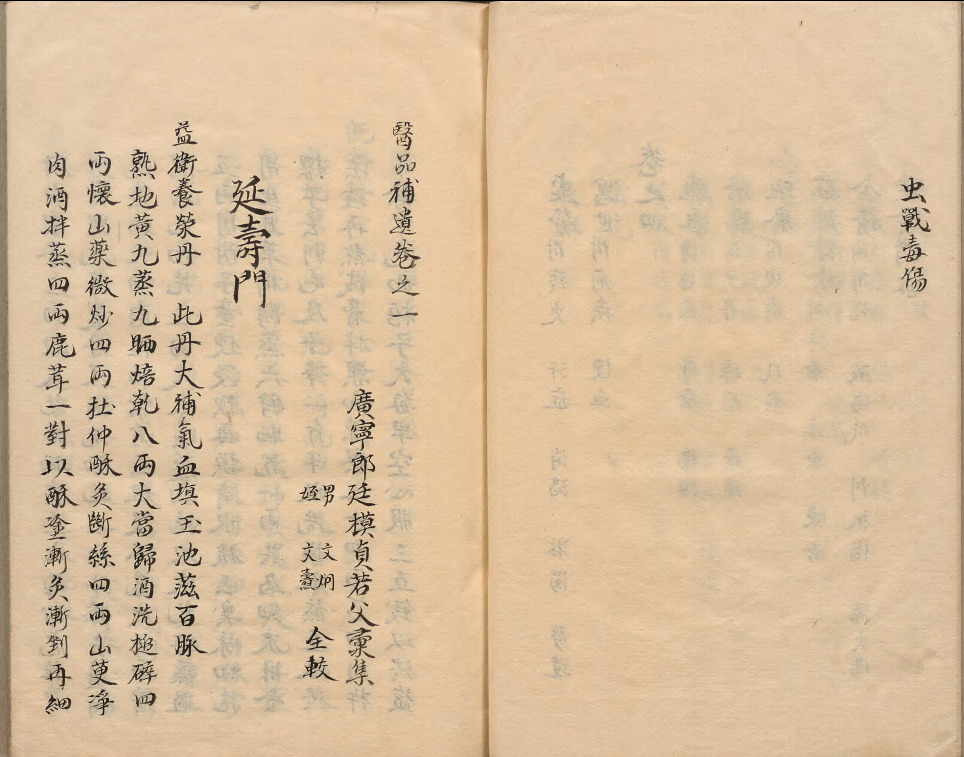 虫戰毒傷
醫品補遺卷之一
廣寧郎廷模貞若父彙集
男 文炯
姪 文燾
仝較
延壽門
益衛養榮丹 此丹大補氣血填玉池滋百脉
熟地黃九蒸九晒焙乾八兩大當歸酒洗搥碎四
兩懷山藥微炒四兩杜仲酥灸斷絲四兩山萸淨
肉酒拌蒸四兩鹿茸一對以酥塗漸灸漸剉再細